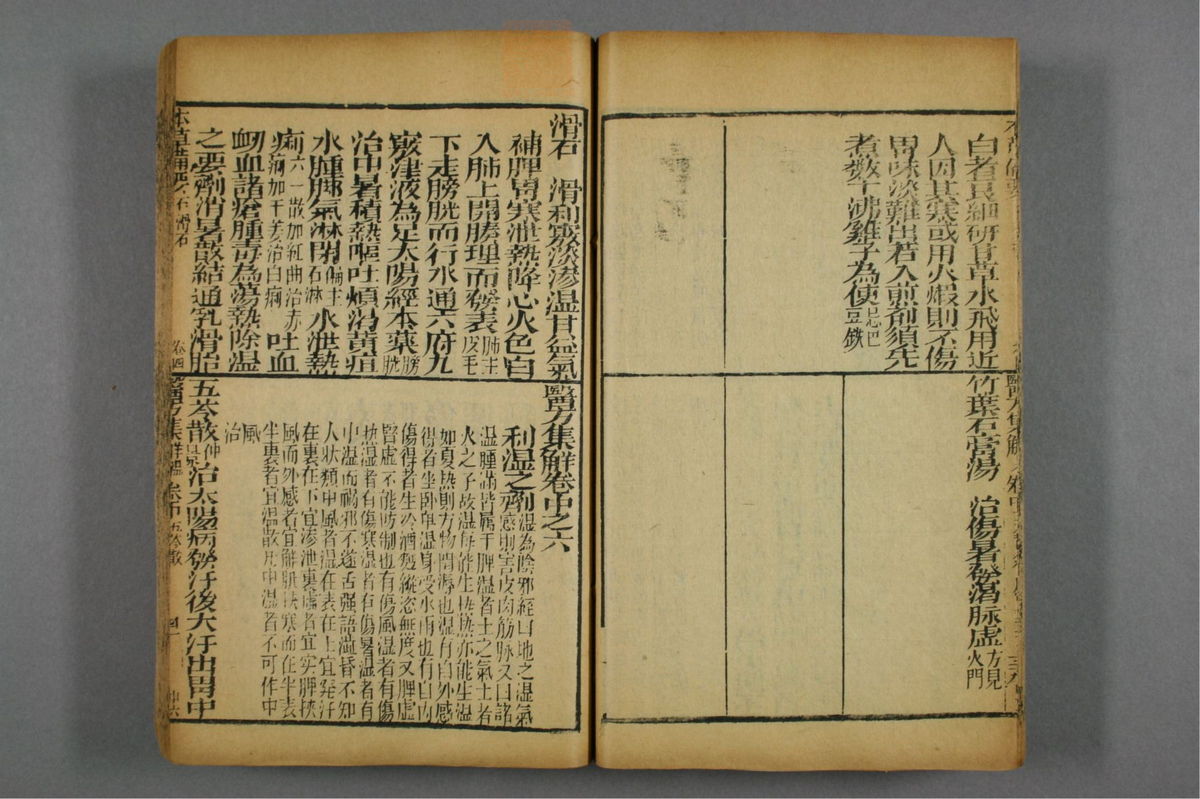 白者良細研甘草水飛用近
人因其寒或用火煅則不傷
胃味淡難出若入煎劑須先
煮數十沸雞子為使忌巴豆鐵
竹葉石膏湯 治傷暑發渴脉虛方見火門
滑石 滑利竅淡滲湿甘益氣
補脾胃寒泄熱降心火色白
入肺上開腠理而發表肺主皮毛
下走膀胱而行水通六府九
竅津液為足太陽經本藥膀胱
治中暑積熱嘔吐煩渴黃疸
水腫脚氣淋閉偏主石淋水泄熱
痢六一散加紅曲治赤痢加干姜治白痢吐血
衂血諸瘡腫毒為蕩熱除湿
之要劑消暑散結通乳滑胎
本草備要 石 滑石 卷四
醫方集觧卷中之六
利湿之劑湿為陰邪經曰地之湿氣感則害皮肉筋脉又曰諸
湿腫滿皆屬于脾湿者土之氣土者
火之子故湿每能生熱熱亦能生湿
如夏熱則万物閏溽也湿有自外感
得者坐卧卑湿身受水雨也有自內
傷得者生冷酒麪縱恣無度又脾虛
腎虛不能防制也有傷風湿者有傷
熱湿者有傷寒湿者有傷暑湿者有
中湿而喎邪不遂舌强語澁昏不知
人狀類中風者湿在表在上宜發汗
在裏在下宜滲泄裏虛者宜实脾挾
風而外感者宜解肌挾寒而在半表
半裏者宜温散凡中湿者不可作中
風治
五苓散仲景治太陽病發汗後大汗出胃中
醫方集觧 卷中 五苓散